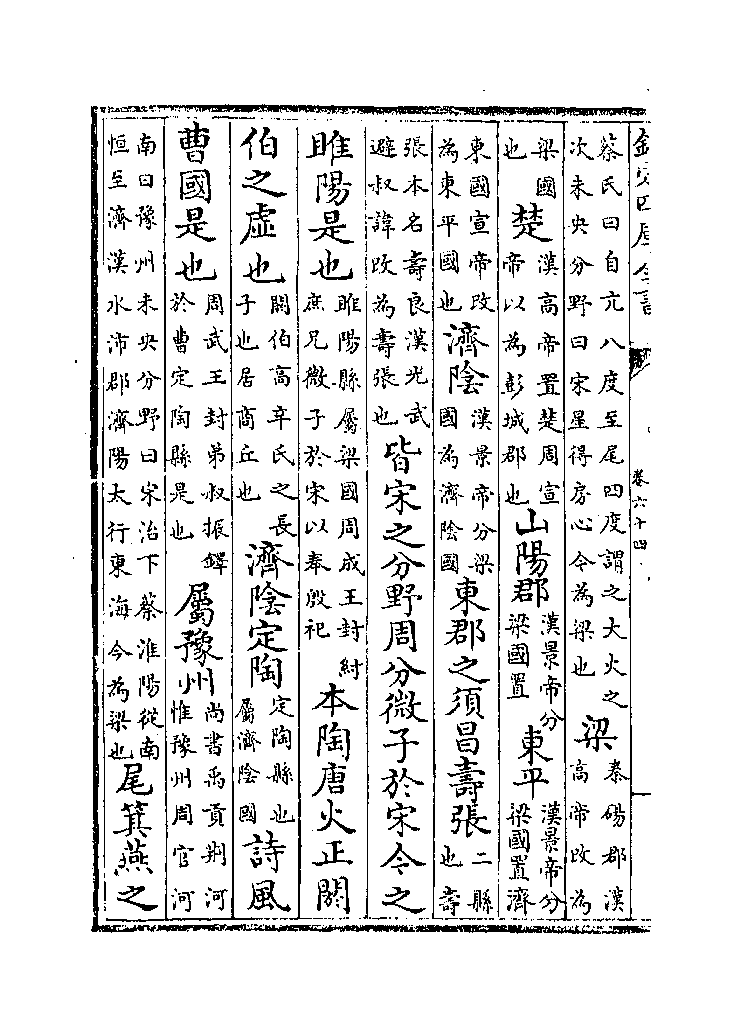 欽定四庫全書 卷六十四
蔡氏曰自亢八度至尾四度謂之大火之次未央分野曰宋星得房心今為梁也梁秦碭郡漢高帝改為
梁國也楚漢高帝置楚周宣帝以為彭城郡也山陽郡漢景帝分梁國置東平漢景帝分梁國置濟
東國宣帝改為東平國也濟陰漢景帝分梁國為濟陰國東郡之須昌壽張二縣也壽
張本名壽良漢光武避叔諱改為壽張也皆宋之分野周分微子於宋今之
睢陽是也睢陽縣屬梁國周成王封紂庶兄微子於宋以奉殷祀本陶唐火正閼
伯之虛也閼伯高辛氏之長子也居商丘也濟陰定陶定陶縣也屬濟陰國詩風
曹國是也周武王封弟叔振鐸於曹定陶縣是也屬豫州尚書禹貢荆河惟豫州周官河
南曰豫州未央分野曰宋治下蔡淮陽從南恒至濟漢水沛郡濟陽太行東海今為梁也尾箕燕之